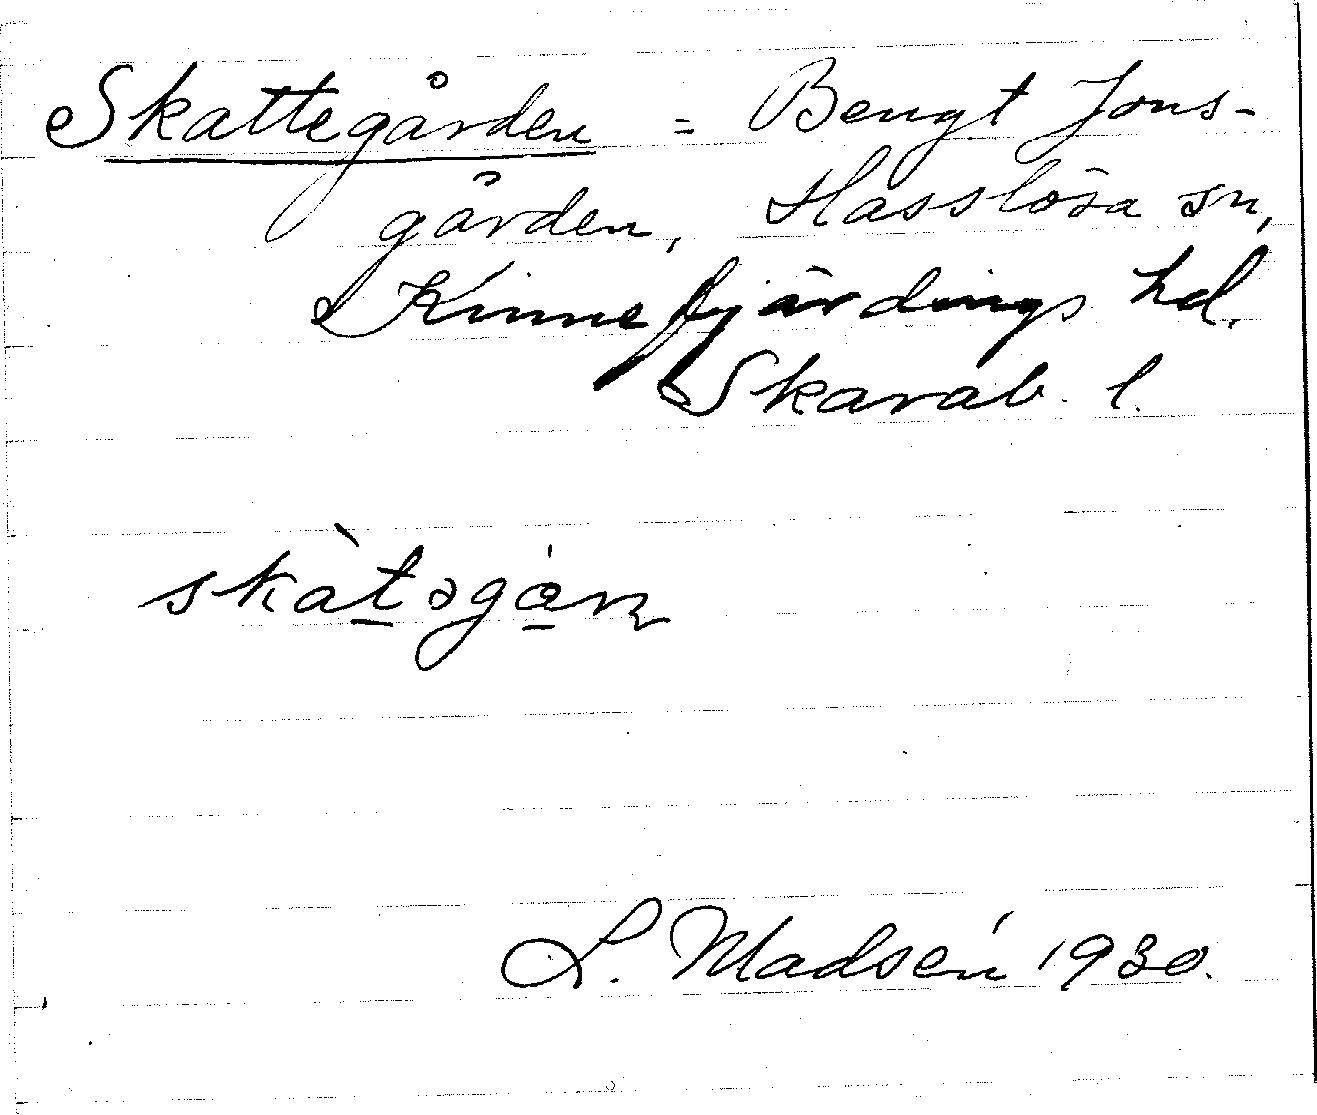 Skattegården = Bengt Jons-
gården, Hasslösa sn,
Kinnefjärdings hd.
Skarab. l.
skàtəgán
L. Madsén 1930.